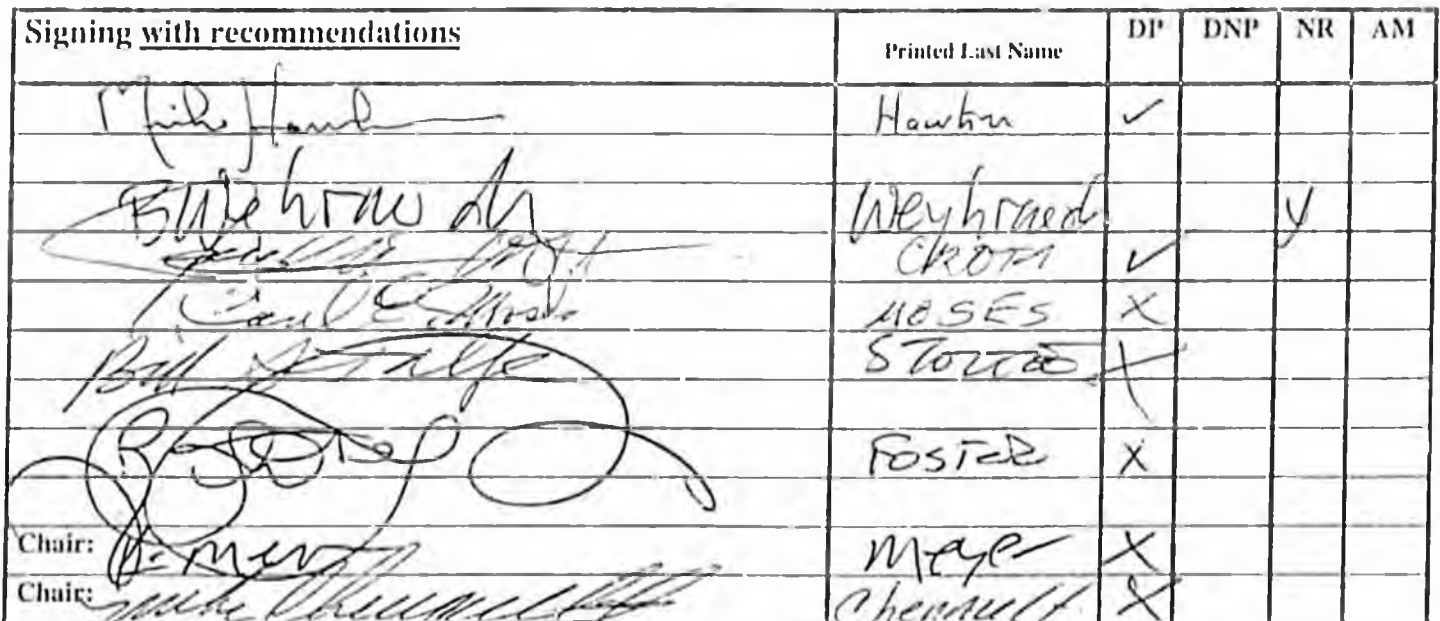 Signing with recommendations Printed Last Name DP DNP NR AM
Mike Hawker Hawker ✓
Weyhrauch Y
Croft ✓
Carl E. Moses MOSES X
Bill Stoltze STOLTZE X
FOSTER X
Chair: K. Meyer Meyer X
Chair: Mike Chenault Chenault X